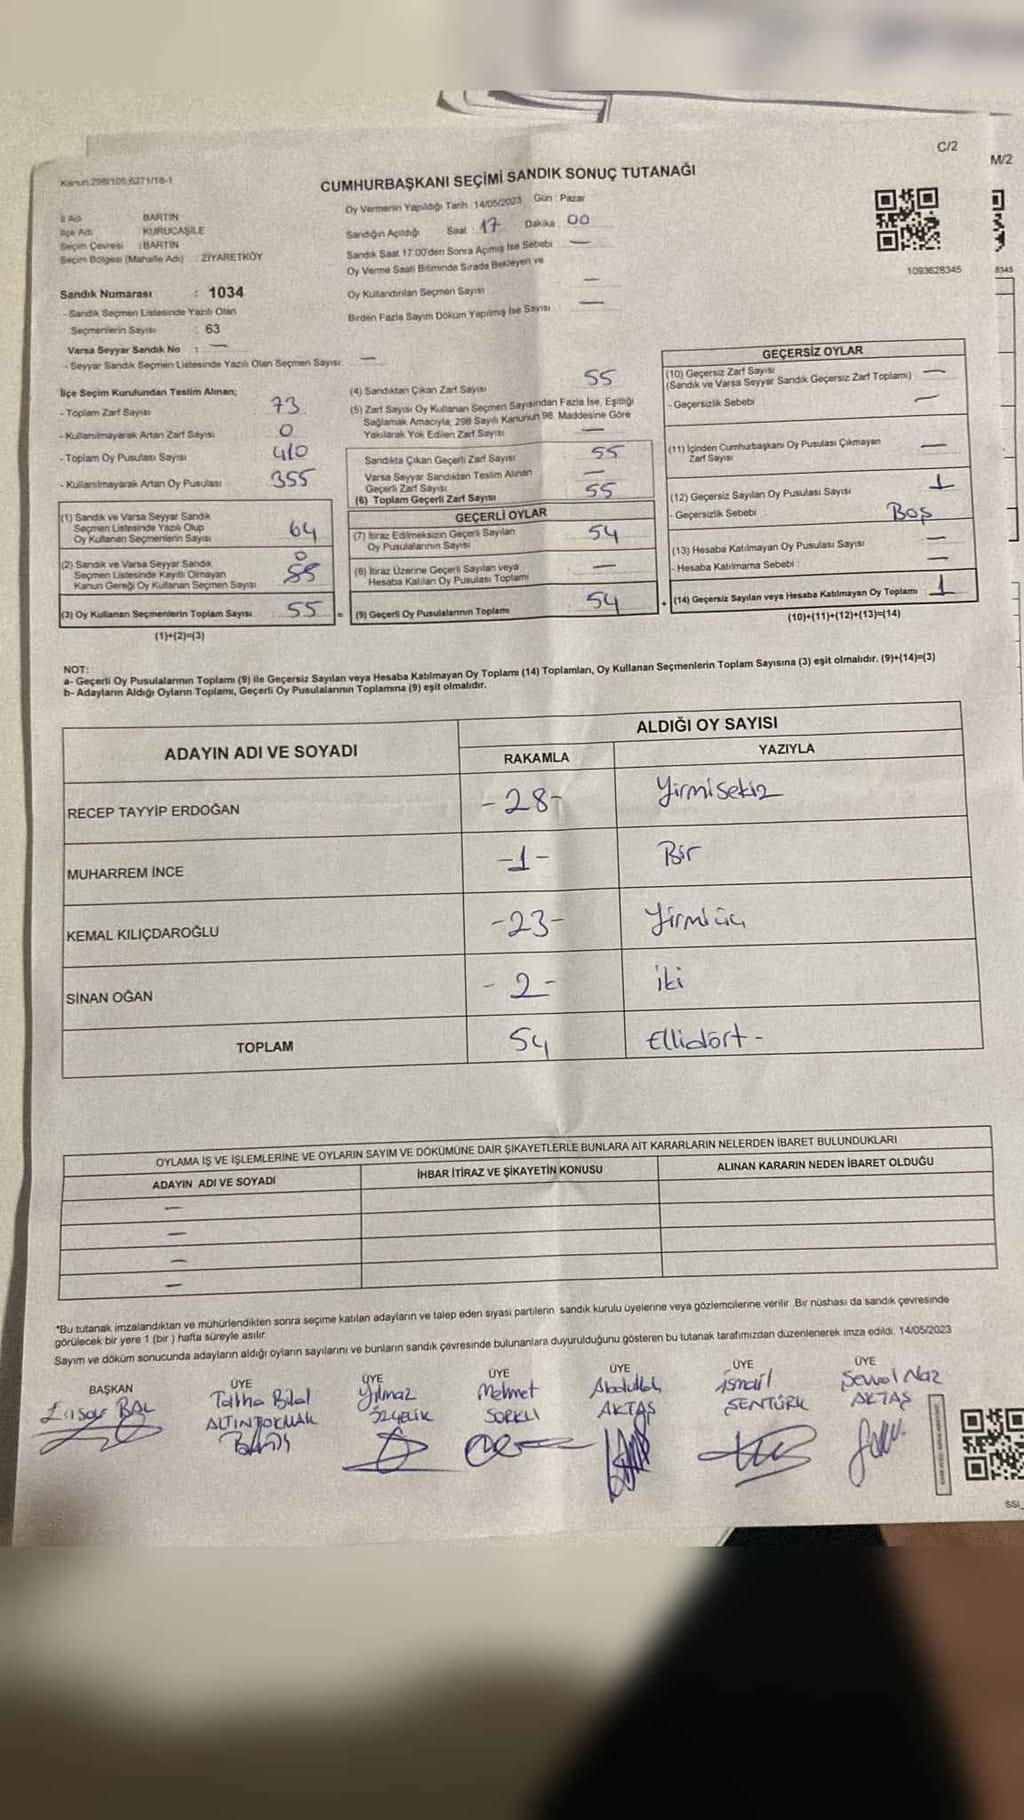 C/2
M/2
Kanun:298/105;6271/18-1
CUMHURBAŞKANI SEÇİMİ SANDIK SONUÇ TUTANAĞI
İl Adı BARTIN
İlçe Adı KURUCAŞİLE
Seçim Çevresi : BARTIN
Seçim Bölgesi (Mahalle Adı) : ZİYARETKÖY
Oy Vermenin Yapıldığı Tarih :14/05/2023 Gün : Pazar
Sandığın Açıldığı Saat : 17 Dakika 00
Sandık Saat 17:00'den Sonra Açımış İse Sebebi —
Oy Verme Saati Bitiminde Sırada Bekleyen ve
Oy Kullandırılan Seçmen Sayısı —
Birden Fazla Sayım Döküm Yapılmış İse Sayısı —
1093628345
8345
Sandık Numarası : 1034
- Sandık Seçmen Listesinde Yazılı Olan
Seçmenlerin Sayısı : 63
Varsa Seyyar Sandık No : —
- Seyyar Sandık Seçmen Listesinde Yazılı Olan Seçmen Sayısı: —
İlçe Seçim Kurulundan Teslim Alınan;
- Toplam Zarf Sayısı 73
- Kullanılmayarak Artan Zarf Sayısı 0
- Toplam Oy Pusulası Sayısı 410
- Kullanılmayarak Artan Oy Pusulası 355
(1) Sandık ve Varsa Seyyar Sandık
Seçmen Listesinde Yazılı Olup
Oy Kullanan Seçmenlerin Sayısı 64
(2) Sandık ve Varsa Seyyar Sandık
Seçmen Listesinde Kayıtlı Olmayan
Kanun Gereği Oy Kullanan Seçmen Sayısı 0
(3) Oy Kullanan Seçmenlerin Toplam Sayısı 55 =
(1)+(2)=(3)
(4) Sandıktan Çıkan Zarf Sayısı 55
(5) Zarf Sayısı Oy Kullanan Seçmen Sayısından Fazla İse, Eşitliği
Sağlamak Amacıyla, 298 Sayılı Kanunun 98. Maddesine Göre
Yakılarak Yok Edilen Zarf Sayısı —
Sandıkta Çıkan Geçerli Zarf Sayısı 55
Varsa Seyyar Sandıktan Teslim Alınan
Geçerli Zarf Sayısı —
(6) Toplam Geçerli Zarf Sayısı 55
GEÇERLİ OYLAR
(7) İtiraz Edilmeksizin Geçerli Sayılan
Oy Pusulalarının Sayısı 54
(8) İtiraz Üzerine Geçerli Sayılan veya
Hesaba Katılan Oy Pusulası Toplamı —
(9) Geçerli Oy Pusulalarının Toplamı 54 +
GEÇERSİZ OYLAR
(10) Geçersiz Zarf Sayısı
(Sandık ve Varsa Seyyar Sandık Geçersiz Zarf Toplamı) —
- Geçersizlik Sebebi : —
(11) İçinden Cumhurbaşkanı Oy Pusulası Çıkmayan
Zarf Sayısı —
(12) Geçersiz Sayılan Oy Pusulası Sayısı 1
- Geçersizlik Sebebi : Boş
(13) Hesaba Katılmayan Oy Pusulası Sayısı —
- Hesaba Katılmama Sebebi : —
(14) Geçersiz Sayılan veya Hesaba Katılmayan Oy Toplamı 1
(10)+(11)+(12)+(13)=(14)
NOT:
a- Geçerli Oy Pusulalarının Toplamı (9) ile Geçersiz Sayılan veya Hesaba Katılmayan Oy Toplamı (14) Toplamları, Oy Kullanan Seçmenlerin Toplam Sayısına (3) eşit olmalıdır. (9)+(14)=(3)
b- Adayların Aldığı Oyların Toplamı, Geçerli Oy Pusulalarının Toplamına (9) eşit olmalıdır.
ADAYIN ADI VE SOYADI ALDIĞI OY SAYISI
RAKAMLA YAZIYLA
RECEP TAYYİP ERDOĞAN -28- Yirmisekiz
MUHARREM İNCE -1- Bir
KEMAL KILIÇDAROĞLU -23- Yirmiüç
SİNAN OĞAN - 2 - iki
TOPLAM 54 Ellidört -
OYLAMA İŞ VE İŞLEMLERİNE VE OYLARIN SAYIM VE DÖKÜMÜNE DAİR ŞİKAYETLERLE BUNLARA AİT KARARLARIN NELERDEN İBARET BULUNDUKLARI
ADAYIN ADI VE SOYADI İHBAR İTİRAZ VE ŞİKAYETİN KONUSU ALINAN KARARIN NEDEN İBARET OLDUĞU
—
—
—
—
*Bu tutanak imzalandıktan ve mühürlendikten sonra seçime katılan adayların ve talep eden siyasi partilerin sandık kurulu üyelerine veya gözlemcilerine verilir. Bir nüshası da sandık çevresinde
görülecek bir yere 1 (bir ) hafta süreyle asılır.
Sayım ve döküm sonucunda adayların aldığı oyların sayılarını ve bunların sandık çevresinde bulunanlara duyurulduğunu gösteren bu tutanak tarafımızdan düzenlenerek imza edildi. 14/05/2023
BAŞKAN ÜYE ÜYE ÜYE ÜYE ÜYE ÜYE
BAL Talha Bilal Yılmaz Mehmet Abdullah ismail Şevval Naz
ALTINTOKMAK ÖZÇELİK SORKLI AKTAŞ ŞENTÜRK AKTAŞ
SSİ_